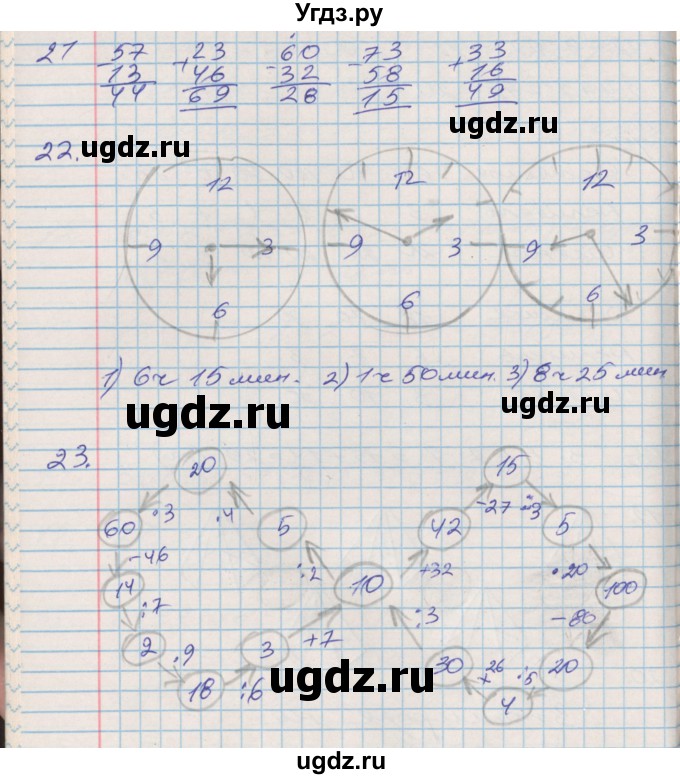 Угдз.ру
21 -57 +23 -60 -73 +33
13 46 32 58 16
44 69 28 15 49
ugdz.ru
22. ugdz.ru
12 12 12
9 3 9 3 9 3
6 6 6
1) 6ч 15 мин. 2) 1ч 50 мин. 3) 8ч 25 мин
ugdz.ru ugdz.ru
23. 20 15
60 ·3 ·4 5 42 -27 :3 5
-46 :2 10 +32 ·20
14 :7 100
2 ·9 3 +7 :3 -80
18 :6 30 +26 :5 20
4
ugdz.ru
ugdz.ru
ugdz.ru